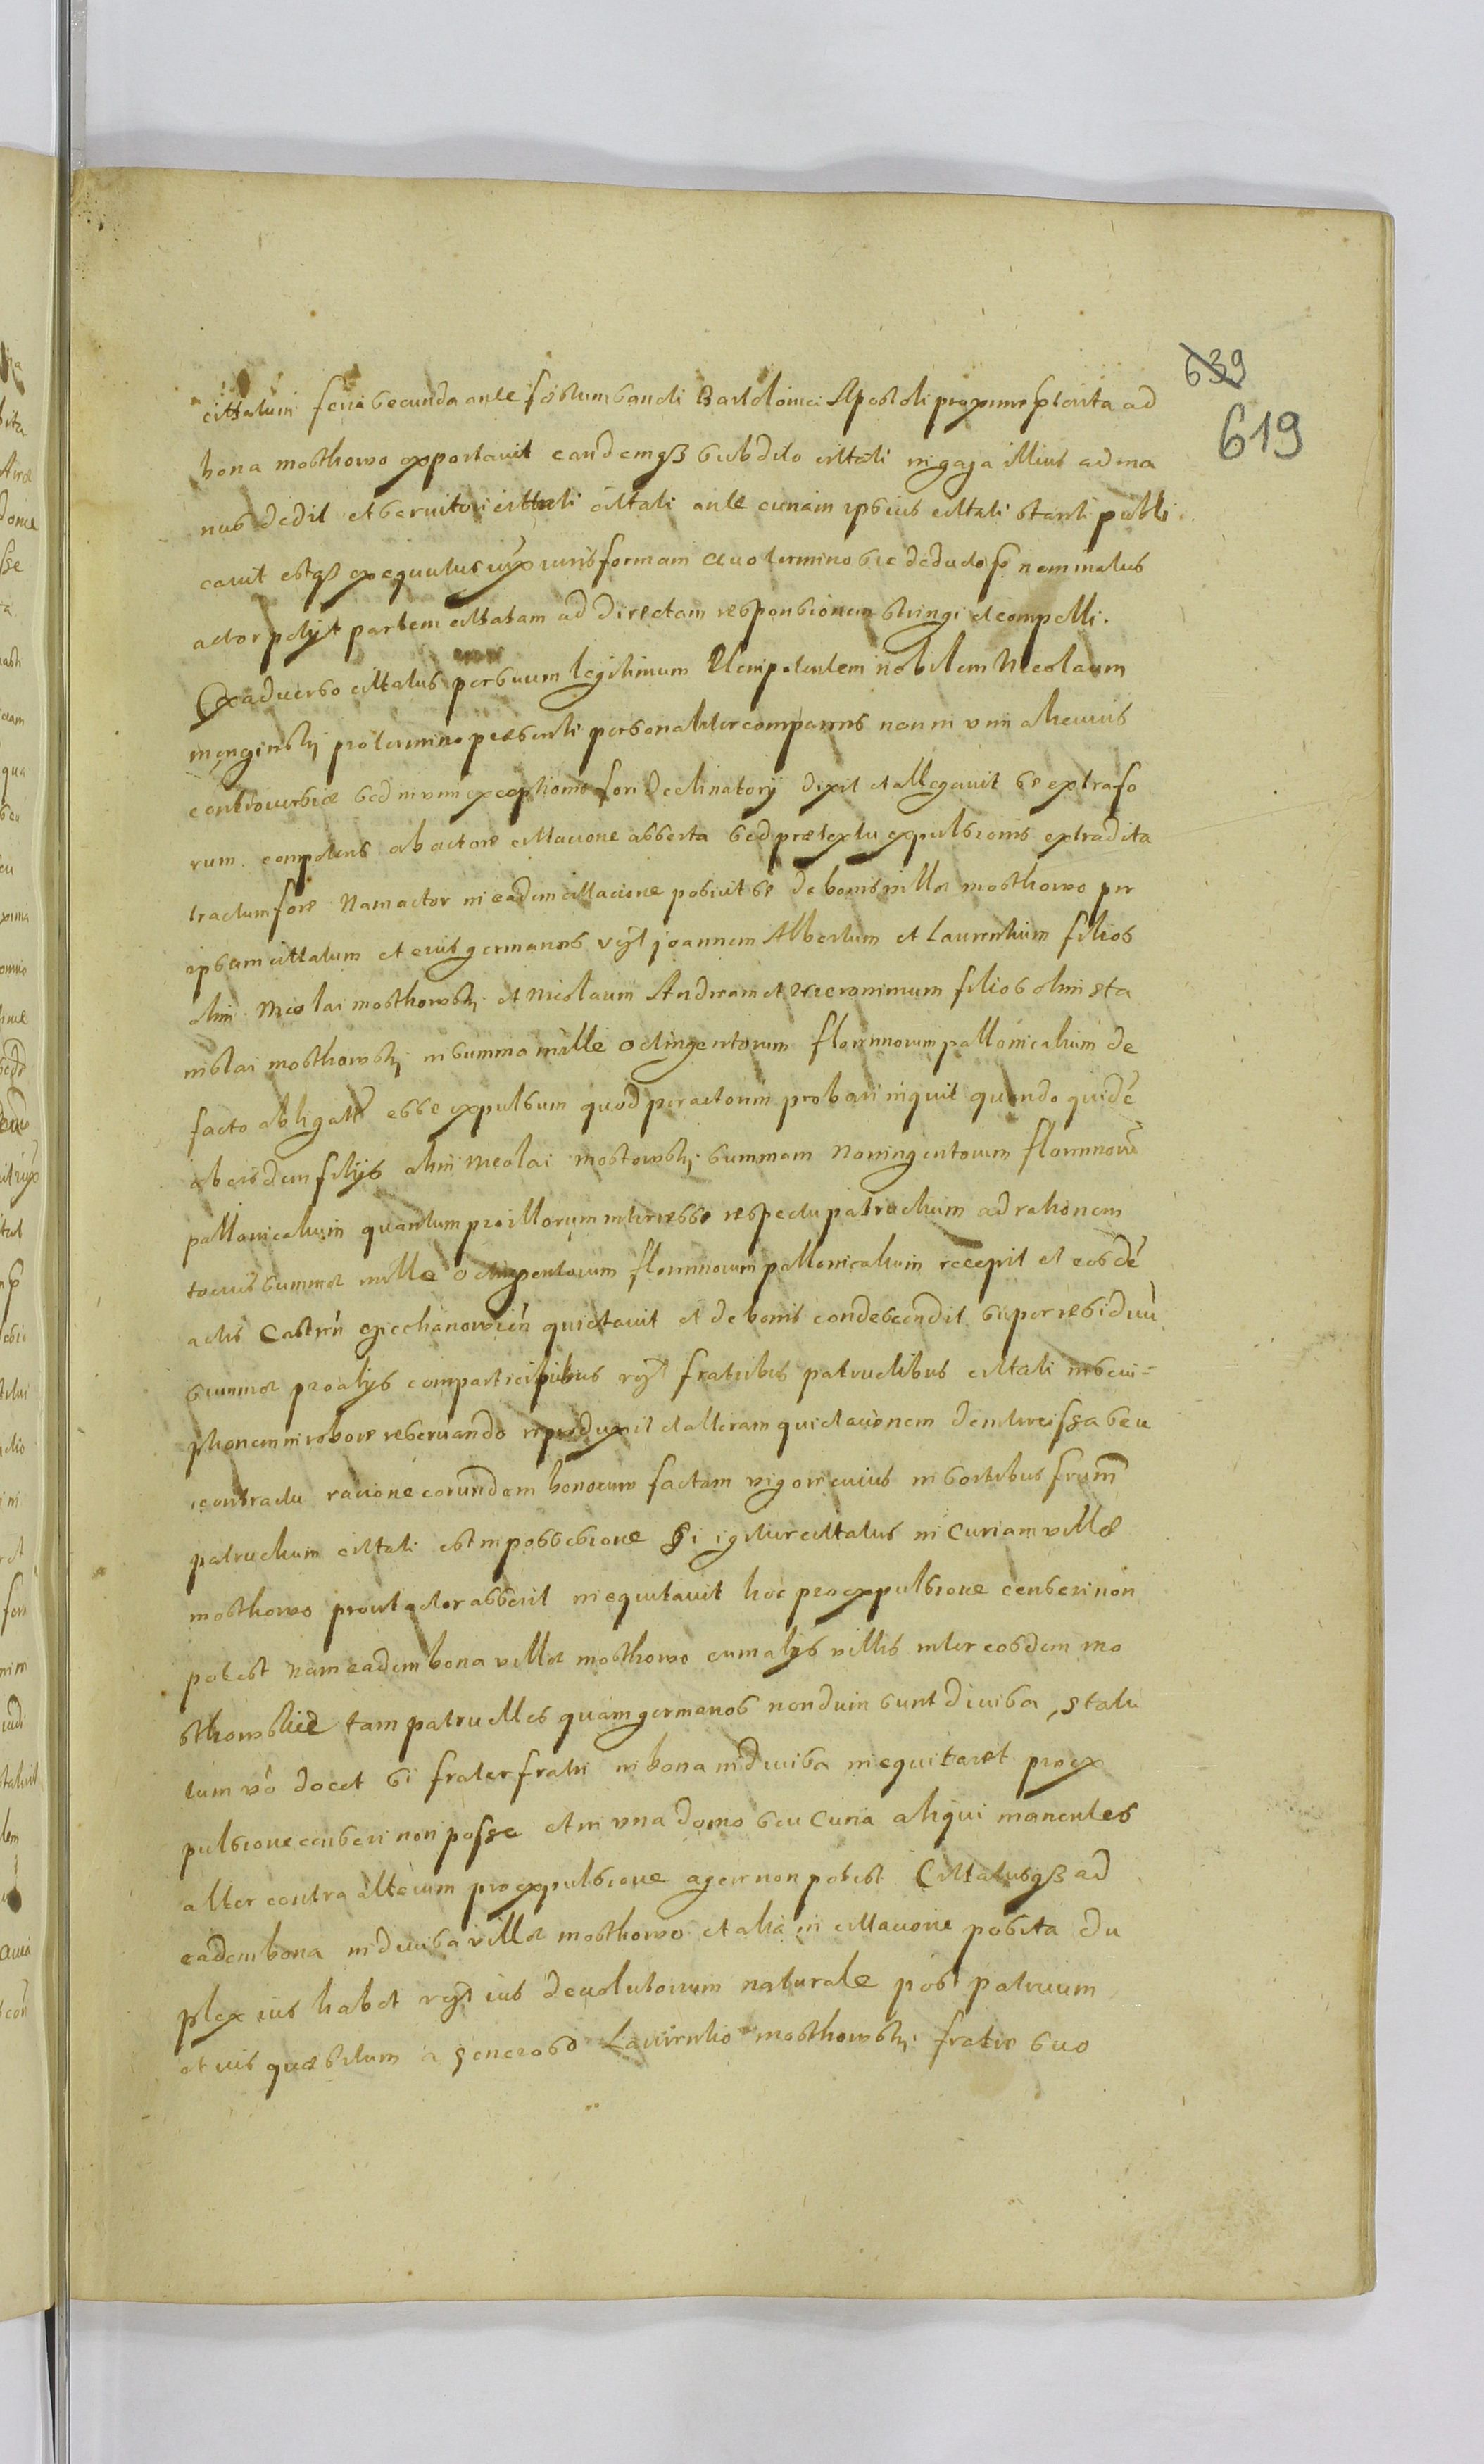 639
619
cittatum feria secunda ante festum sancti Bartolomei Apostoli proxime pterita ad
bona mosthowo apportauit eandemqz subdito cittati in gaja illius ad ma
nus dedit et seruitori cittati cittati ante curiam ipsius cittati stanti publi
cauit estqz exequutus iuxta iuris formam Quo termino sic deducto se nominatus
actor petijt partem cittatam ad directam responsionem stringi et compelli.
Ex aduerso cittatus per suum legitimum Plenipotentem nobilem Nicolaum
pro termino praesenti personaliter comparens non in vim alicuius
controuersiae sed in vim exceptionis fori declinatorij dixit et allegauit se extra fo
rum competens ab actore cittacione asserta sed praetextu expulsionis extradita
tractum fore Nam actor in eadem cittacione posuit se de bonis villae mosthowo per
ipsum cittatum et eius germanos vzt joannem Albertum et Laurentium filios
olim Nicolai mosthowskj et Nicolaum Andream et Hieronimum filios olim Sta
nislai mosthowskj in summa mille octingentorum florenorum pollonicalium de
facto obligatis esse expulsum quod per actorem probari nequit quando quidé
ab eisdem filijs olim Nicolai mostowskj summam noningentorum florenorū
pollonicalium quantum pro illorum interesse respectu patruelium ad rationem
tocius summae mille octingentorum florenorum pollonicalium recepit et eosdé
actis Castren̄ Czechanowien̄ quietauit et de bonis condescendit super residuū
summae pro alijs comparticipibus vzt fratribus patruelibus cittati inscri=
ptionem in robore reseruando reproduxit et alteram quietacionem de intercissa seu
contractu racione eorundem bonorum factam vigore cuius in sortibus frum̄
patruelium cittati est in possessione Si igitur cittatus in Curiam villae
mosthowo prout actor asserit inequitauit hoc pro expulsione censeri non
potest Nam eadem bona villae mosthowo cum alijs villis inter eosdem mo
sthowskie tam patrueles quam germanos nondum sunt diuisa, Statu
tum vō docet si frater fratri in bona indiuisa inequitaret pro ex
pulsione censeri non posse et in vna domo seu Curia aliqui manentes
alter contra alterum pro expulsione agere non potest Cittatusqz ad
eadem bona indiuisa villae mosthowo et alia in cittacione posita du
plex ius habet vzt ius deuolutorium naturale post patruum
et ius quaesitum a generoso Laurentio mosthowskj fratre suo